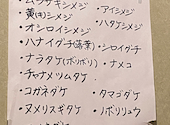 ムラサキシメジ
・黄(キ)シメジ ・アイシメジ
・オシロイシメジ ・ハタケシメジ
・ハナイグチ(落葉) ・シロイグチ
・ナラタケ(ボリボリ) ・ナメコ
・チャナメツムタケ
・コガネダケ ・タマゴダケ
・ヌメリスギタケ ・ノボリリュウ